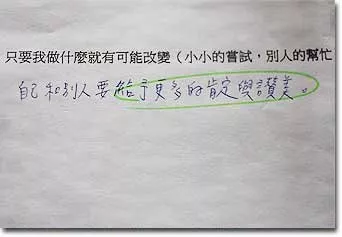 只要我做什麼就有可能改變（小小的嘗試，別人的幫忙
自己和別人要給予更多的肯定與讚美。